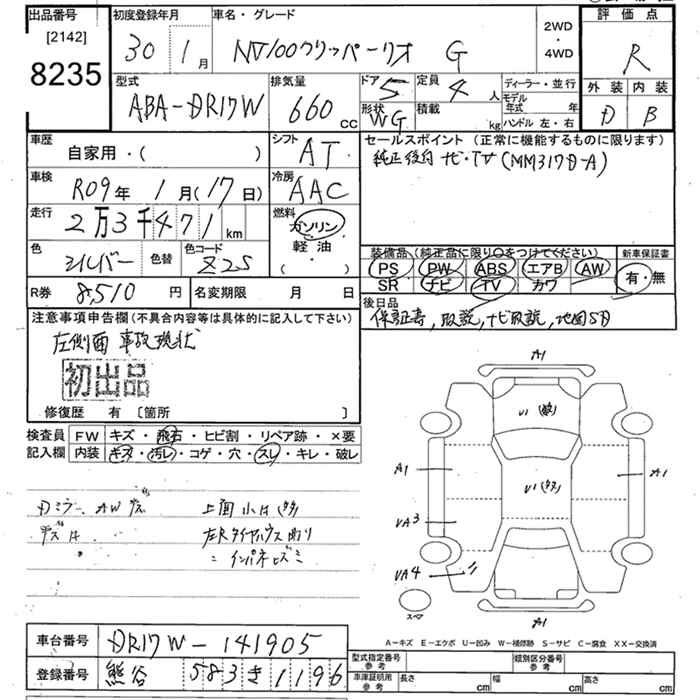 出品番号
[2142]
8235
初度登録年月
30年 1月
車名・グレード
NV100クリッパーリオ G
2WD
・
4WD
評価点
R
外装 内装
D B
型式
ABA-DR17W
排気量
660 cc
ドア 5
定員 4人
形状 WG
積載 kg
ディーラー・並行
モデル年式 年
ハンドル 左・右
車歴
自家用・( )
シフト
AT
セールスポイント (正常に機能するものに限ります)
純正後付ナビ・TV (MM317D-A)
車検
R09年 1月(17日)
冷房
AAC
走行
2万3千471km
燃料
ガソリン
・
軽油
・
( )
色
シルバー
色替
色コード
Z2S
装備品 (純正品に限り○をつけてください)
PS PW ABS エアB AW
SR ナビ TV カワ
新車保証書
有・無
R券 8,510円
名変期限 月 日
後日品
保証書,取説,ナビ取説,地図SD
注意事項申告欄(不具合内容等は具体的に記入して下さい)
左側面 事故現状
初出品
修復歴 有 [箇所 ]
検査員記入欄
FW キズ・飛石・ヒビ割・リペア跡・×要
内装 キズ・汚レ・コゲ・穴・スレ・キレ・破レ
Dミラー、AWキズ
上面小凹(多)
左Rタイヤハウス曲り
インパネヒズミ
A1
U1
A1
U1
A1
UA3
UA4
スペア
A1
A-キズ E-エクボ U-凹み W-補修跡 S-サビ C-腐食 XX-交換済
車台番号 DR17W-141905
登録番号 熊谷 583 き 1196
型式指定番号 参考
類別区分番号 参考
車庫証明用 参考
長さ cm
幅 cm
高さ cm